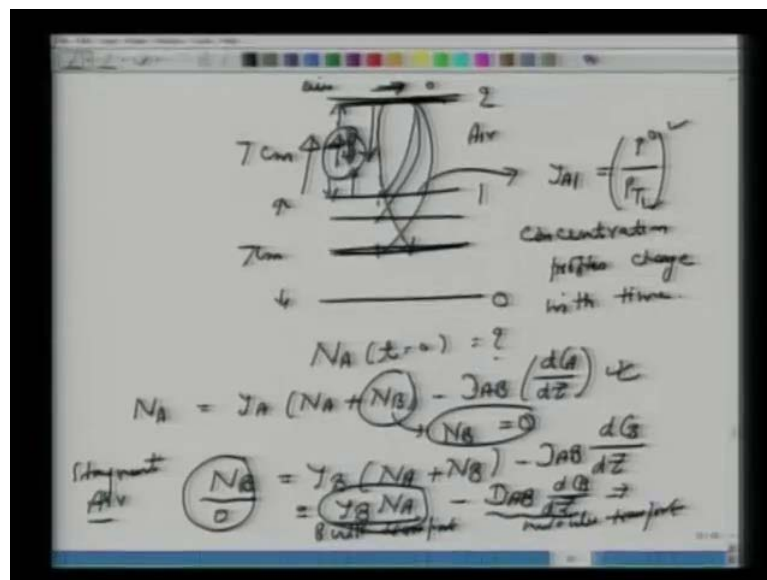 air → 0
2
7 cm
Air
1
y_A1 = (P^0 / P_T)
Concentration
7 cm
profiles change
with time.
0
N_A (t=0) = ?
N_A = y_A (N_A + N_B) - D_AB (dC_A / dZ)
N_B = 0
Stagnant
Air
N_B = y_B (N_A + N_B) - D_AB dC_B / dZ
0 = y_B N_A - D_AB dC_B / dZ →
B bulk transport
molecular transport